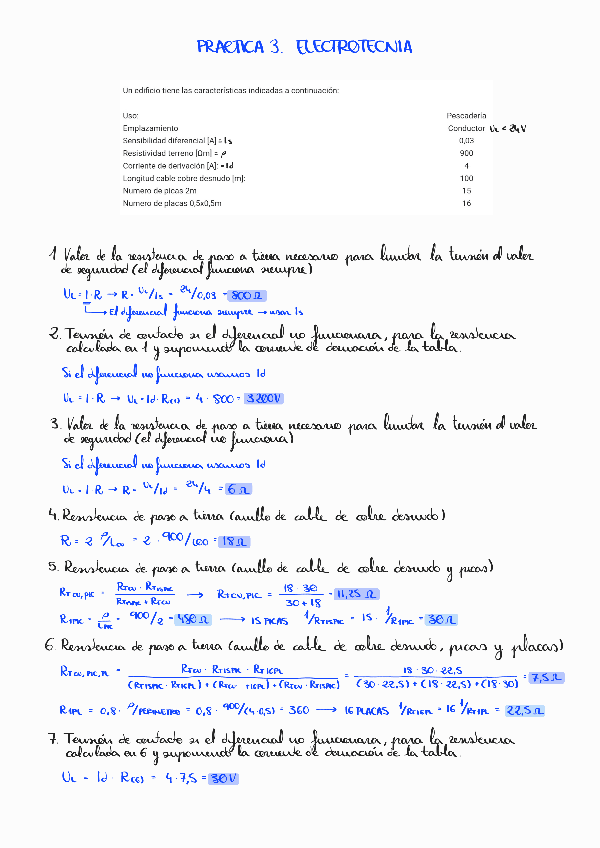 PRACTICA 3. ELECTROTECNIA
Un edificio tiene las características indicadas a continuación:
Uso: Pescadería
Emplazamiento Conductor UL < 24V
Sensibilidad diferencial [A] = Is 0,03
Resistividad terreno [Ωm] = ρ 900
Corriente de derivación [A]: = Id 4
Longitud cable cobre desnudo [m]: 100
Numero de picas 2m 15
Numero de placas 0,5x0,5m 16
1 Valor de la resistencia de paso a tierra necesario para limitar la tensión al valor
de seguridad (el diferencial funciona siempre)
UL = I · R → R = UL/Is = 24/0,03 = 800 Ω
El diferencial funciona siempre → usar Is
2. Tensión de contacto si el diferencial no funcionara, para la resistencia
calculada en 1 y suponiendo la corriente de derivación de la tabla.
Si el diferencial no funciona usamos Id
UL = I · R → UL = Id · R(1) = 4 · 800 = 3200V
3. Valor de la resistencia de paso a tierra necesario para limitar la tensión al valor
de seguridad (el diferencial no funciona)
Si el diferencial no funciona usamos Id
UL = I R → R = UL/Id = 24/4 = 6 Ω
4. Resistencia de paso a tierra (anillo de cable de cobre desnudo)
R = 2 ρ/Lcu = 2 · 900/100 = 18 Ω
5. Resistencia de paso a tierra (anillo de cable de cobre desnudo y picas)
RTCU,PIC = RTCU · RT15PIC / RT15PIC + RTCU → RTCU,PIC = 18 · 30 / 30 + 18 = 11,25 Ω
R1PIC = ρ/LPIC = 900/2 = 450 Ω → 15 PICAS 1/RT15PIC = 15 · 1/R1PIC = 30 Ω
6. Resistencia de paso a tierra (anillo de cable de cobre desnudo, picas y placas)
RTCU,PIC,PL = RTCU · RT15PIC · RT16PL / (RT15PIC · RT16PL) + (RTCU · T16PL) + (RTCU · RT15PIC) = 18 · 30 · 22,5 / (30 · 22,5) + (18 · 22,5) + (18 · 30) = 7,5 Ω
R1PL = 0,8 · ρ/PERIMETRO = 0,8 · 900/(4·0,5) = 360 → 16 PLACAS 1/RT16PL = 16 1/RT1PL = 22,5 Ω
7. Tensión de contacto si el diferencial no funcionara, para la resistencia
calculada en 6 y suponiendo la corriente de derivación de la tabla.
UL = Id · R(6) = 4 · 7,5 = 30V